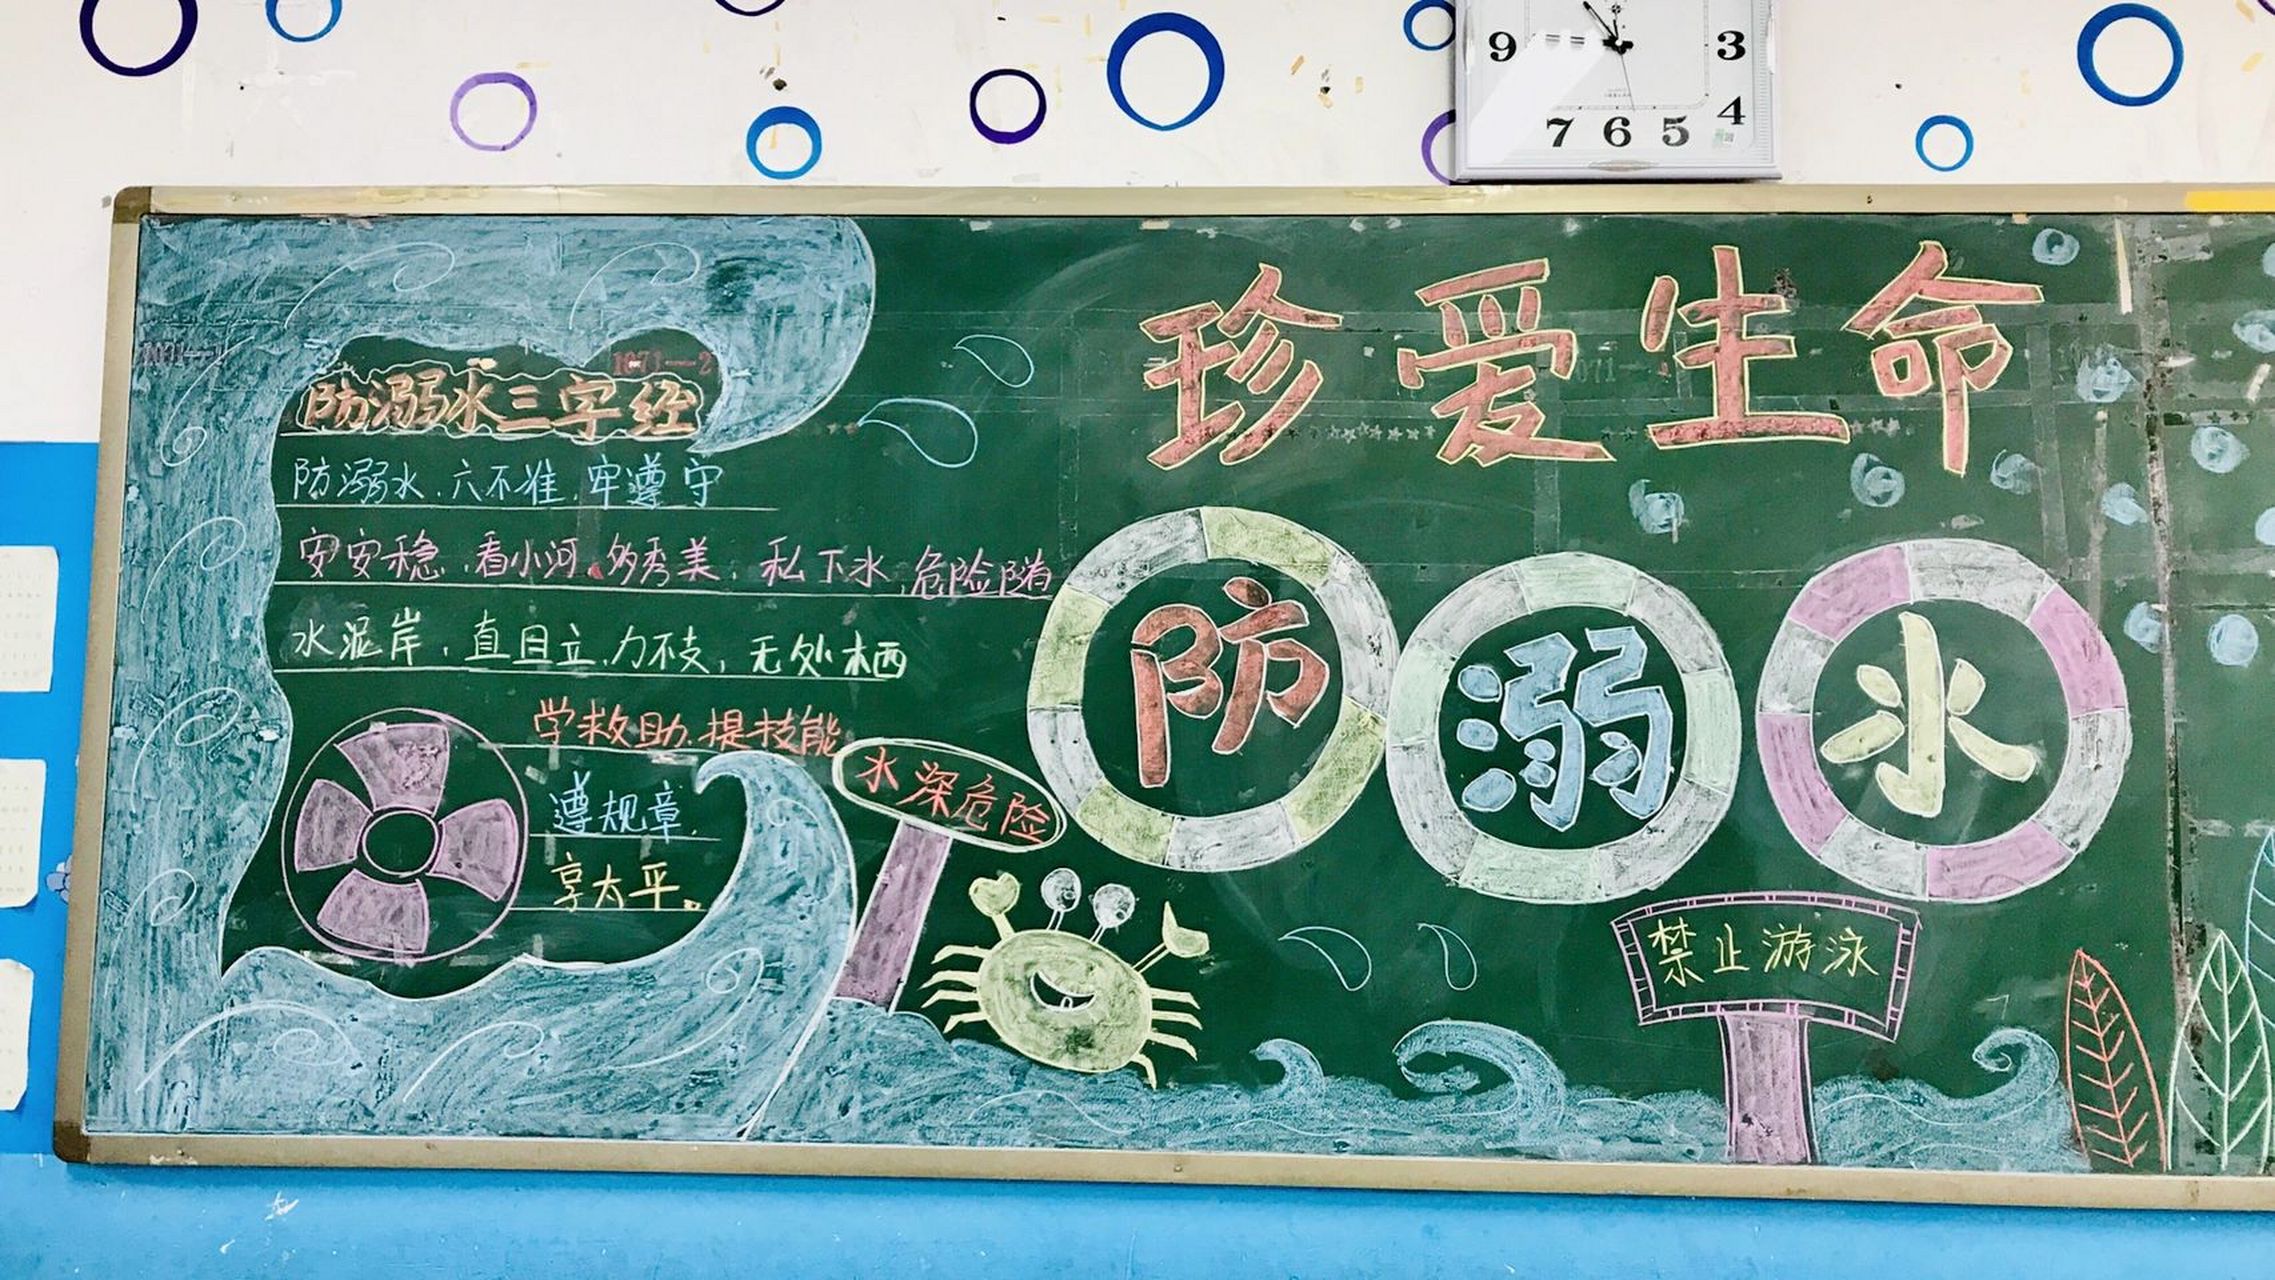 9
3
4
7 6 5
珍爱生命
防溺水
防溺水三字经
防溺水,六不准,牢遵守
安安稳,看小河,多秀美,私下水,危险随
水湿岸,直且立,力不支,无处栖
学救助,提技能
遵规章,
享太平。
水深危险
禁止游泳